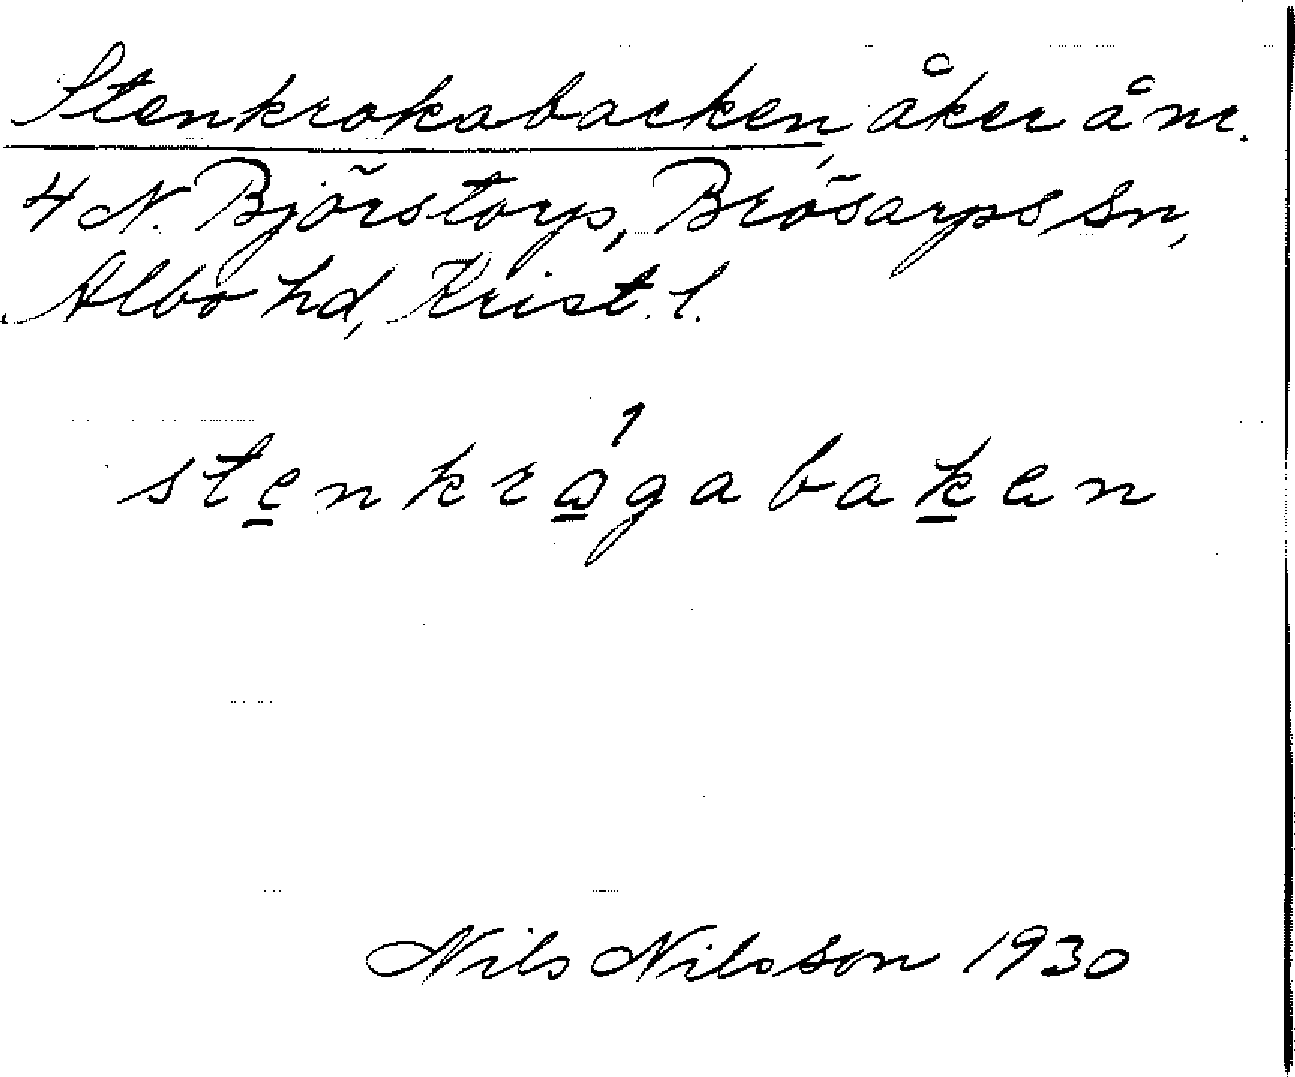 Stenkrokabacken, åker å nr.
4 N. Björstorp, Brösarps sn,
Albo hd, Krist. l.
stenkrågabaken
Nils Nilsson 1930